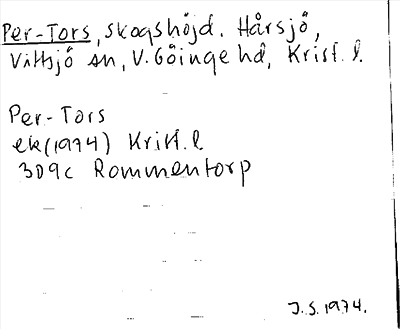 Per-Tors, skogshöjd. Hårsjö,
Vittsjö sn, V. Göinge hd, Krist. l.
Per-Tors
ek (1974) Krist. l
309c Rommentorp
J.S. 1974.